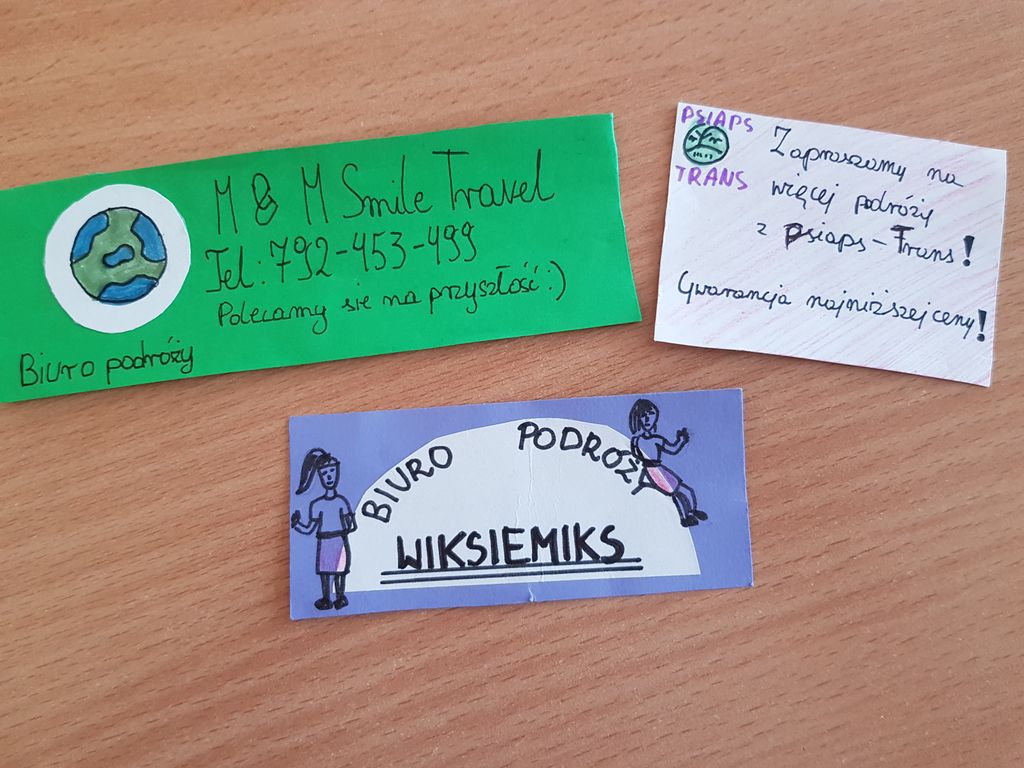 M & M Smile Travel
Tel.: 792-453-499
Polecamy się na przyszłość :)
Biuro podróży
PSIAPS
TRANS
Zapraszamy na
więcej podróży
z Psiaps-Trans!
Gwarancja najniższej ceny!
BIURO PODRÓŻY
WIKSIEMIKS